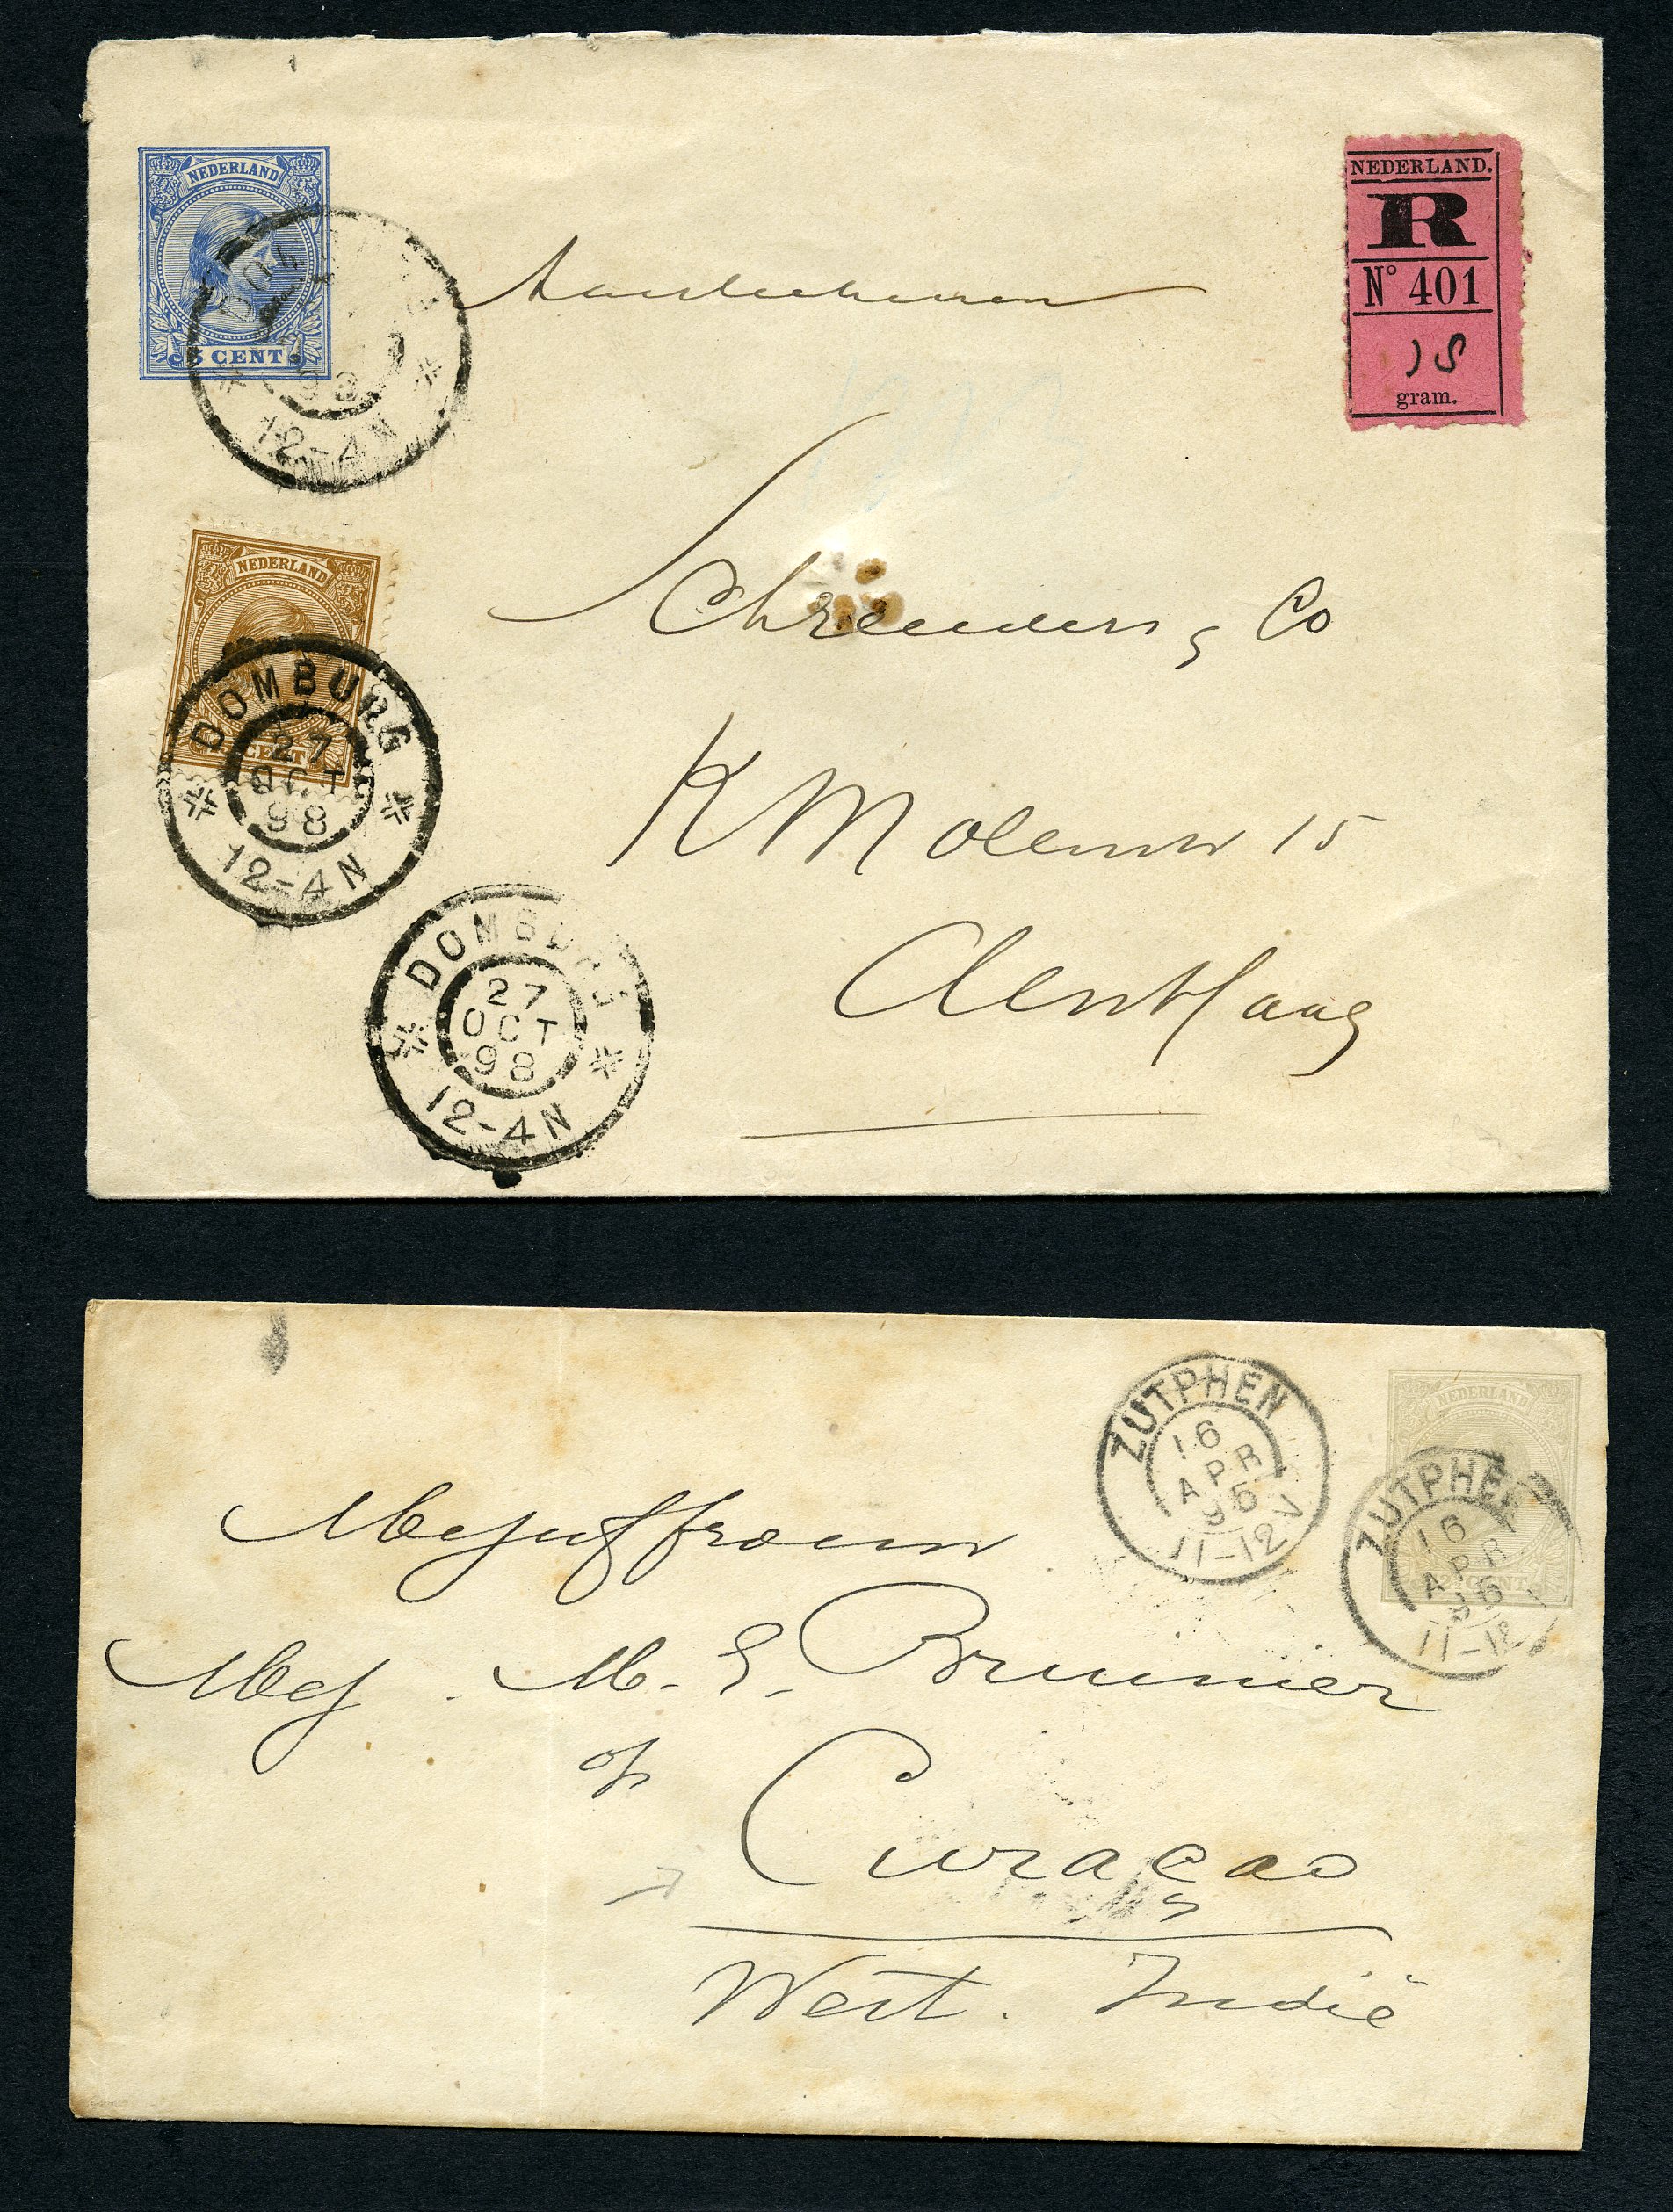 NEDERLAND
5 CENT
12-4N
NEDERLAND.
R
Nº 401
15
gram.
Schreuders & Co
NEDERLAND
CENT
DOMBURG
27
OCT
98
12-4N
K Molenstr 15
DOMBURG
27
OCT
98
12-4N
den Haag
ZUTPHEN
16
APR
95
11-12V
NEDERLAND
CENT
ZUTPHEN
16
APR
95
11-12
Mejuffrouw
Mej. M. E. Brunier
op
Curaçao
West. Indië